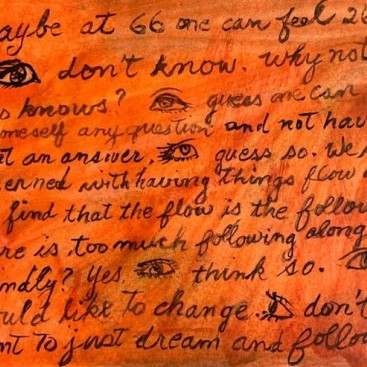 aybe at 66 one can feel 26
don't know. why not
o knows? guess one can
meself any question and not hav
t an answer. guess so. We s
erned with having things flow
find that the flow is the follow
re is too much following along
ndly? Yes, think so.
uld like to change. don't
nt to just dream and follow